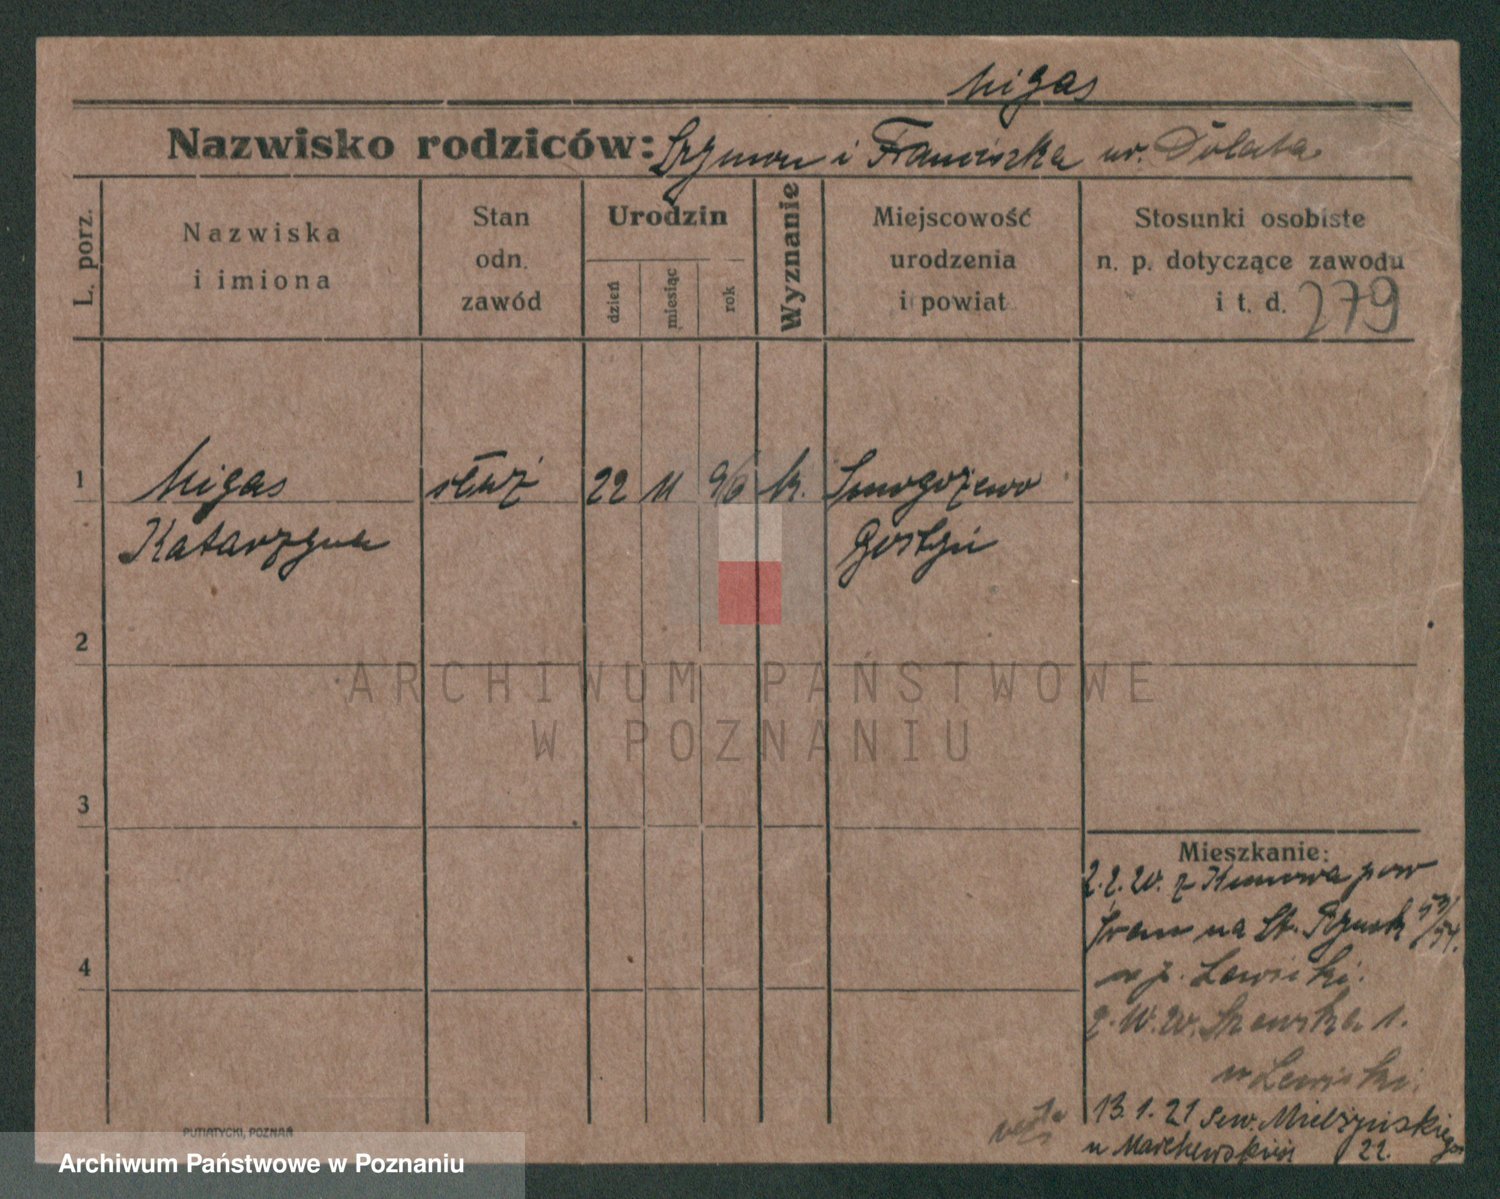 Migas
Nazwisko rodziców: Szymon i Franciszka ur. Dolata
L. porz.
Nazwiska
i imiona
Stan
odn.
zawód
Urodzin
dzień
miesiąc
rok
Wyznanie
Miejscowość
urodzenia
i powiat
Stosunki osobiste
n. p. dotyczące zawodu
i t. d. 279
1 Migas służ 22 11 96 k. Smogorzewo
Katarzyna Gostyń
2
ARCHIWUM PAŃSTWOWE
W POZNANIU
3
Mieszkanie:
2.2.20. z Kunowa pow
Śrem na St. Rynek 53/54.
4
2.10.20. 1.
13.1.21 Sew. Mielżyńskiego
22.
PUTIATYCKI, POZNAŃ
Archiwum Państwowe w Poznaniu